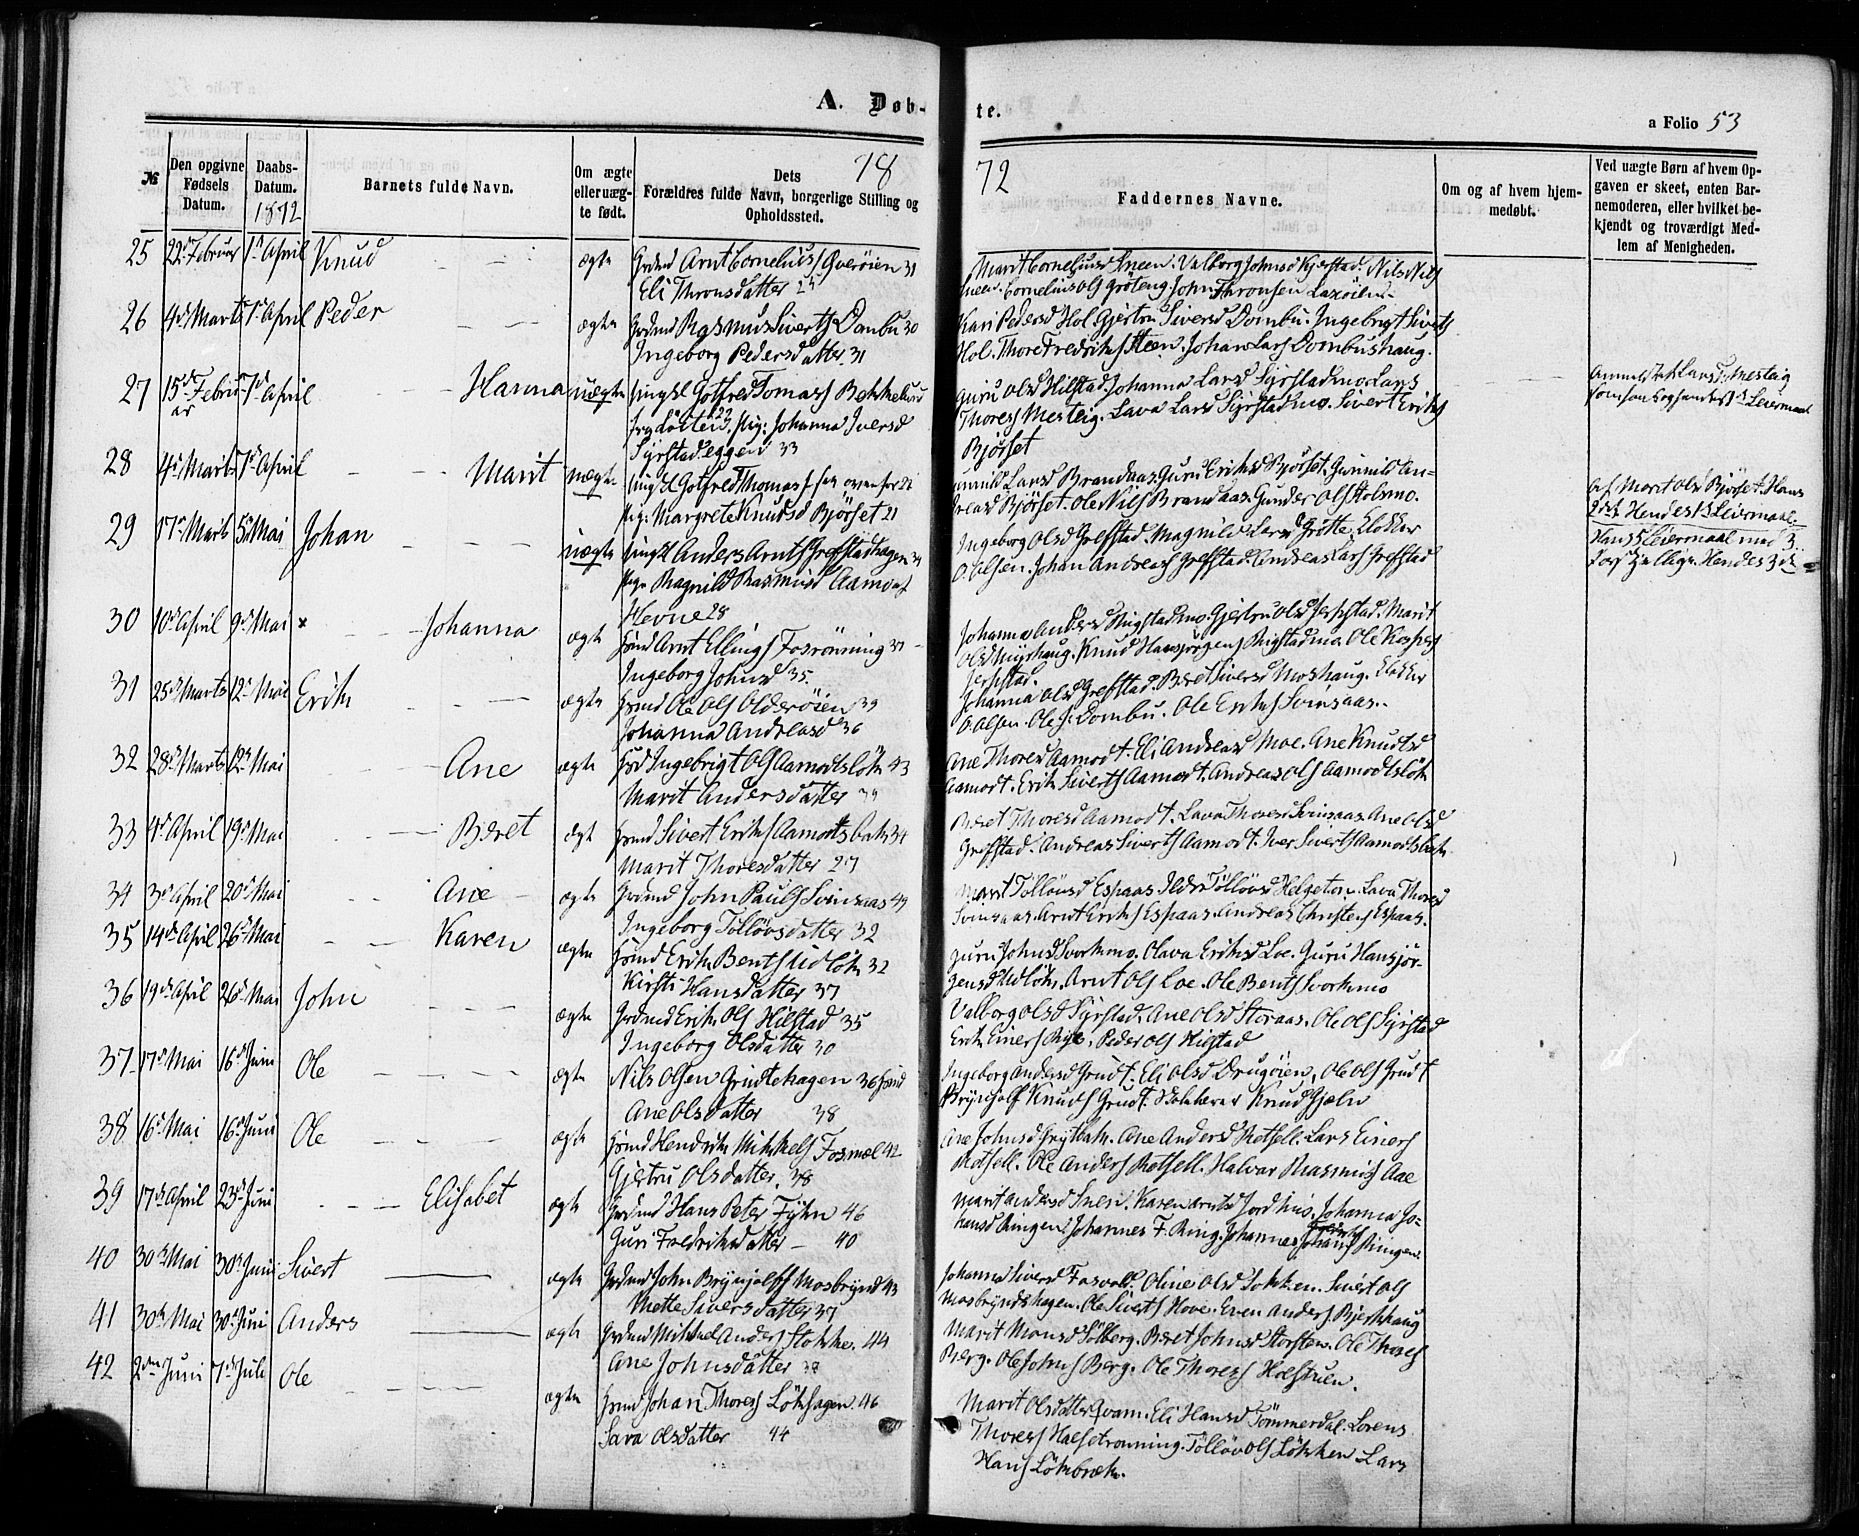 A. Døb-
te.
a Folio 53
№
Den opgivne Fødsels Datum.
Daabs-Datum. 1872
Barnets fulde Navn.
Om ægte eller uæg-te født.
18
Dets Forældres fulde Navn, borgerlige Stilling og Opholdssted.
72
Faddernes Navne.
Om og af hvem hjem-medøbt.
Ved uægte Børn af hvem Op-gaven er skeet, enten Bar-nemoderen, eller hvilket be-kjendt og troværdigt Med-lem af Menigheden.
25 22d Februar 1d April Knud ægte Grdmd Arnt Cornelius Hoverøien 31
Eli Thronsdatter 25
Marit Corneliusd Sneen. Valborg Johnsd Kjerstad. Nils Nils
Sneen. Cornelius Ols Gröteng. John Thronsen Laxöien.
26 4d Marts 1d April Peder ægte Grdmd Rasmus Siverts Dombu 30
Ingeborg Pedersdatter 31
Kari Pedersd Hol. Gjertru Siversd Dombu. Ingebrigt Siverts
Hol. Thore Fredriks Steen. Johan Lars Dombushaug.
27 15d Februar 7d April Hanna uægte Ungkl Gotfred Tomas
Pig: Johanna Iversd
Syrstadeggen 33
Guru Olsd Hilstad. Johanna Larsd Syrstadmo. Lars
Thores Mesteig. Lava Larsd Syrstadmo. Sivert Eriks
Bjørset
28 4d Marts 7d April Marit uægte Ungkl Gotfred Thomas ovenfor 22
Pig: Margrete Knudsd Bjørset 21
Larsd Brandaas. Guru Eriksd Bjørset. Gunnild An-
dreas Bjørset. Ole Nils Brandaas. Gunder Ols Holsmo.
Marit Olsd Bjørset. Hans
2det Hendes 1st Leiermaal.
29 17d Marts 5d Mai Johan uægte Ungkl Anders Arnts Grefstadhagen
Pige Magnild Rasmusd Aamot
Hevne 28
Ingeborg Olsd Grefstad. Magnild Larsd Grötte. Klokker
O. Olsen. Johan Andreas Grefstad. Andreas Lars Grefstad
Hans 5 Leiermaal med 3
30 10d April 9d Mai × Johanna ægte Hsmd Arnt Ellings Fosrönning 37
Ingeborg Johnsd 35.
Johanna Andersd Rigstadmo. Gjertru Olsd Jerpstad. Marit
Olsd Myrhaug. Knud Hansjörgens Rigstadmo. Ole
Jerpstad.
31 25d Marts 12d Mai Erik ægte Hsmd Ole Ols Olderöien 39
Johanna Andreasd 36
Johanna Olsd Grefstad. Beret Siversd Moshaug. Klokker
O. Olsen. Ole J. Dombu. Ole Eriks Svinsaas.
32 28d Marts 12d Mai Ane ægte Ingebrigt Ols Aamodtslök 43
Marit Andersdatter
Ane Thoresd Aamodt. Eli Andreasd Moe. Ane Knudsd
Aamodt. Erik Siverts Aamodt. Andreas Ols Aamodtslök
33 4d April 19d Mai Beret ægt Hsmd Sivert Eriks Aamodtsbak 34
Marit Thoresdatter 27
Beret Thoresd Aamodt. Lava Thoresd Svinsaas. Ane Olsd
Grefstad. Andreas Siverts Aamodt. Iver Siverts Aamodtsbak
34 3d April 20d Mai Ane ægte Grdmd John Pauls Svinsaas 49
Ingeborg Tollövsdatter 32
Marit Tollövsd Espaas. Tollövsd Helgeton. Lava Thoresd
Svinsaas. Arnt Eriks Espaas. Andreas Christens Espaas.
35 14d April 26d Mai Karen ægte Hsmd Erik Bents Udlök 32
Kirsti Hansdatter 37
Guru Johnsd Svorkmo. Olava Eriksd Loe. Guru Hansjör-
gensd Udlök. Arnt Ols Loe. Ole Bents Svorkmo
36 19d April 26d Mai John ægte Grdmd Erik Ols Hilstad 35
Ingeborg Olsdatter 30
Valborg Olsd Syrstad. Ane Olsd Storaas. Ole Ols Syrstad
Erik Einers Peder Ols Hilstad
37 17d Mai 16d Juni Ole ægte Nils Olsen Grudtehagen 36 Hsmd
Ane Olsdatter 38
Ingeborg Andersd Grudt. Eli Olsd Drugöien, Ole Ols Grudt
Brynjolf Knuds Grudt. Knud Gjeln
38 16d Mai 16d Juni Ole ægte Hsmd Hendrik Mikkels Fosmæl 42
Gjertru Olsdatter. 38
Ane Johnsd Grytbak. Ane Andersd Retsell. Lars Einers
Retsell. Ole Anders Retsell. Halvar Rasmus Aae
39 17d April 23d Juni Elisabet ægte Grdmd Hans Peter Fyhn 46
Guri Fredriksdatter — 40
Marit Andersd Sneen. Karen Arntsd Jordhus. Johanna Jo-
hansd Ringen. Johannes F. Ring. Johannes Johans Ringen.
40 30d Mai 30d Juni Sivert ægte Grdmd John Brynjolfs Mosbrynd 43
Mette Siversdatter 37
Johanna Siversd Fosvold. Oline Olsd Lokken. Sivert Ols
Mosbryndshagen. Ole Siverts Hove. Even Anders Bjerkhaug
41 30d Mai 30d Juni Anders ægte Grdmd Mikkel Anders Stokke. 44
Ane Johnsdatter
Marit Monsd Solberg. Beret Johnsd Storsteen. Ole Thores
Berg. Ole Johns Berg. Ole Thores Holstuen.
42 2den Juni 7d Juli Ole ægte Hsmd Johan Thores Lökhagen. 46
Lava Olsdatter 44
Marit Olsdatter Qvam. Eli Hansd Tömmerdal. Lorens
Thores Halsetrønning. Tollöv Ols Lökken. Lars
Hans Lökbræk.